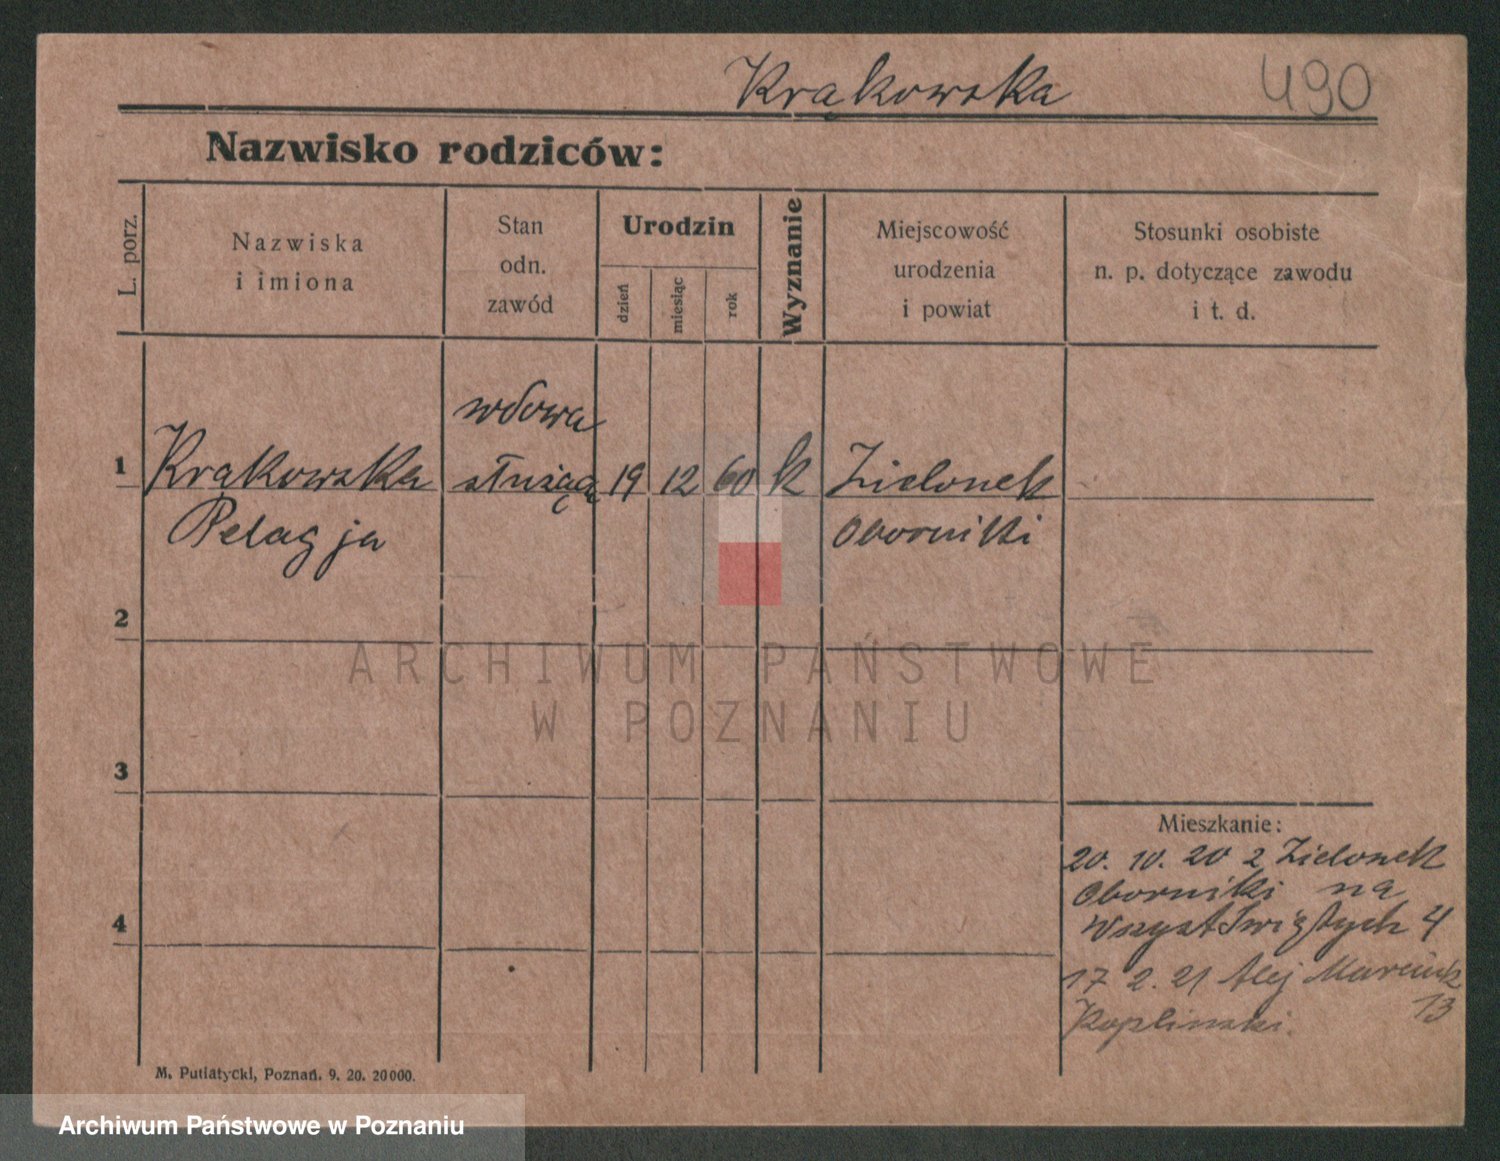 Krąkowska
490
Nazwisko rodziców:
L. porz.
Nazwiska
i imiona
Stan
odn.
zawód
Urodzin
dzień
miesiąc
rok
Wyznanie
Miejscowość
urodzenia
i powiat
Stosunki osobiste
n. p. dotyczące zawodu
i t. d.
wdowa
1 Krąkowska służącą 19 12 60 k Zielonek
Pelagja Oborniki
2
ARCHIWUM PAŃSTWOWE
W POZNANIU
3
Mieszkanie:
20. 10. 20 z Zielonek
Oborniki na
Wszyst Świętych 4
4
17 2. 21 Alej Marcink
13
Koplinski.
M. Putiatycki, Poznań. 9. 20. 20000.
Archiwum Państwowe w Poznaniu